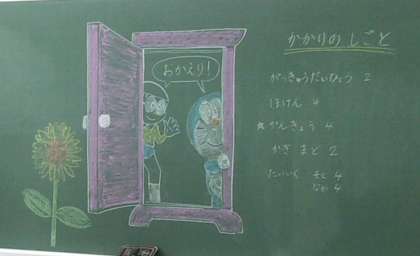 おかえり!
かかりのしごと
がっきゅうだいひょう 2
ほけん 4
かんきょう 4
かぎ まど 2
たいいく そと 4
なか 4